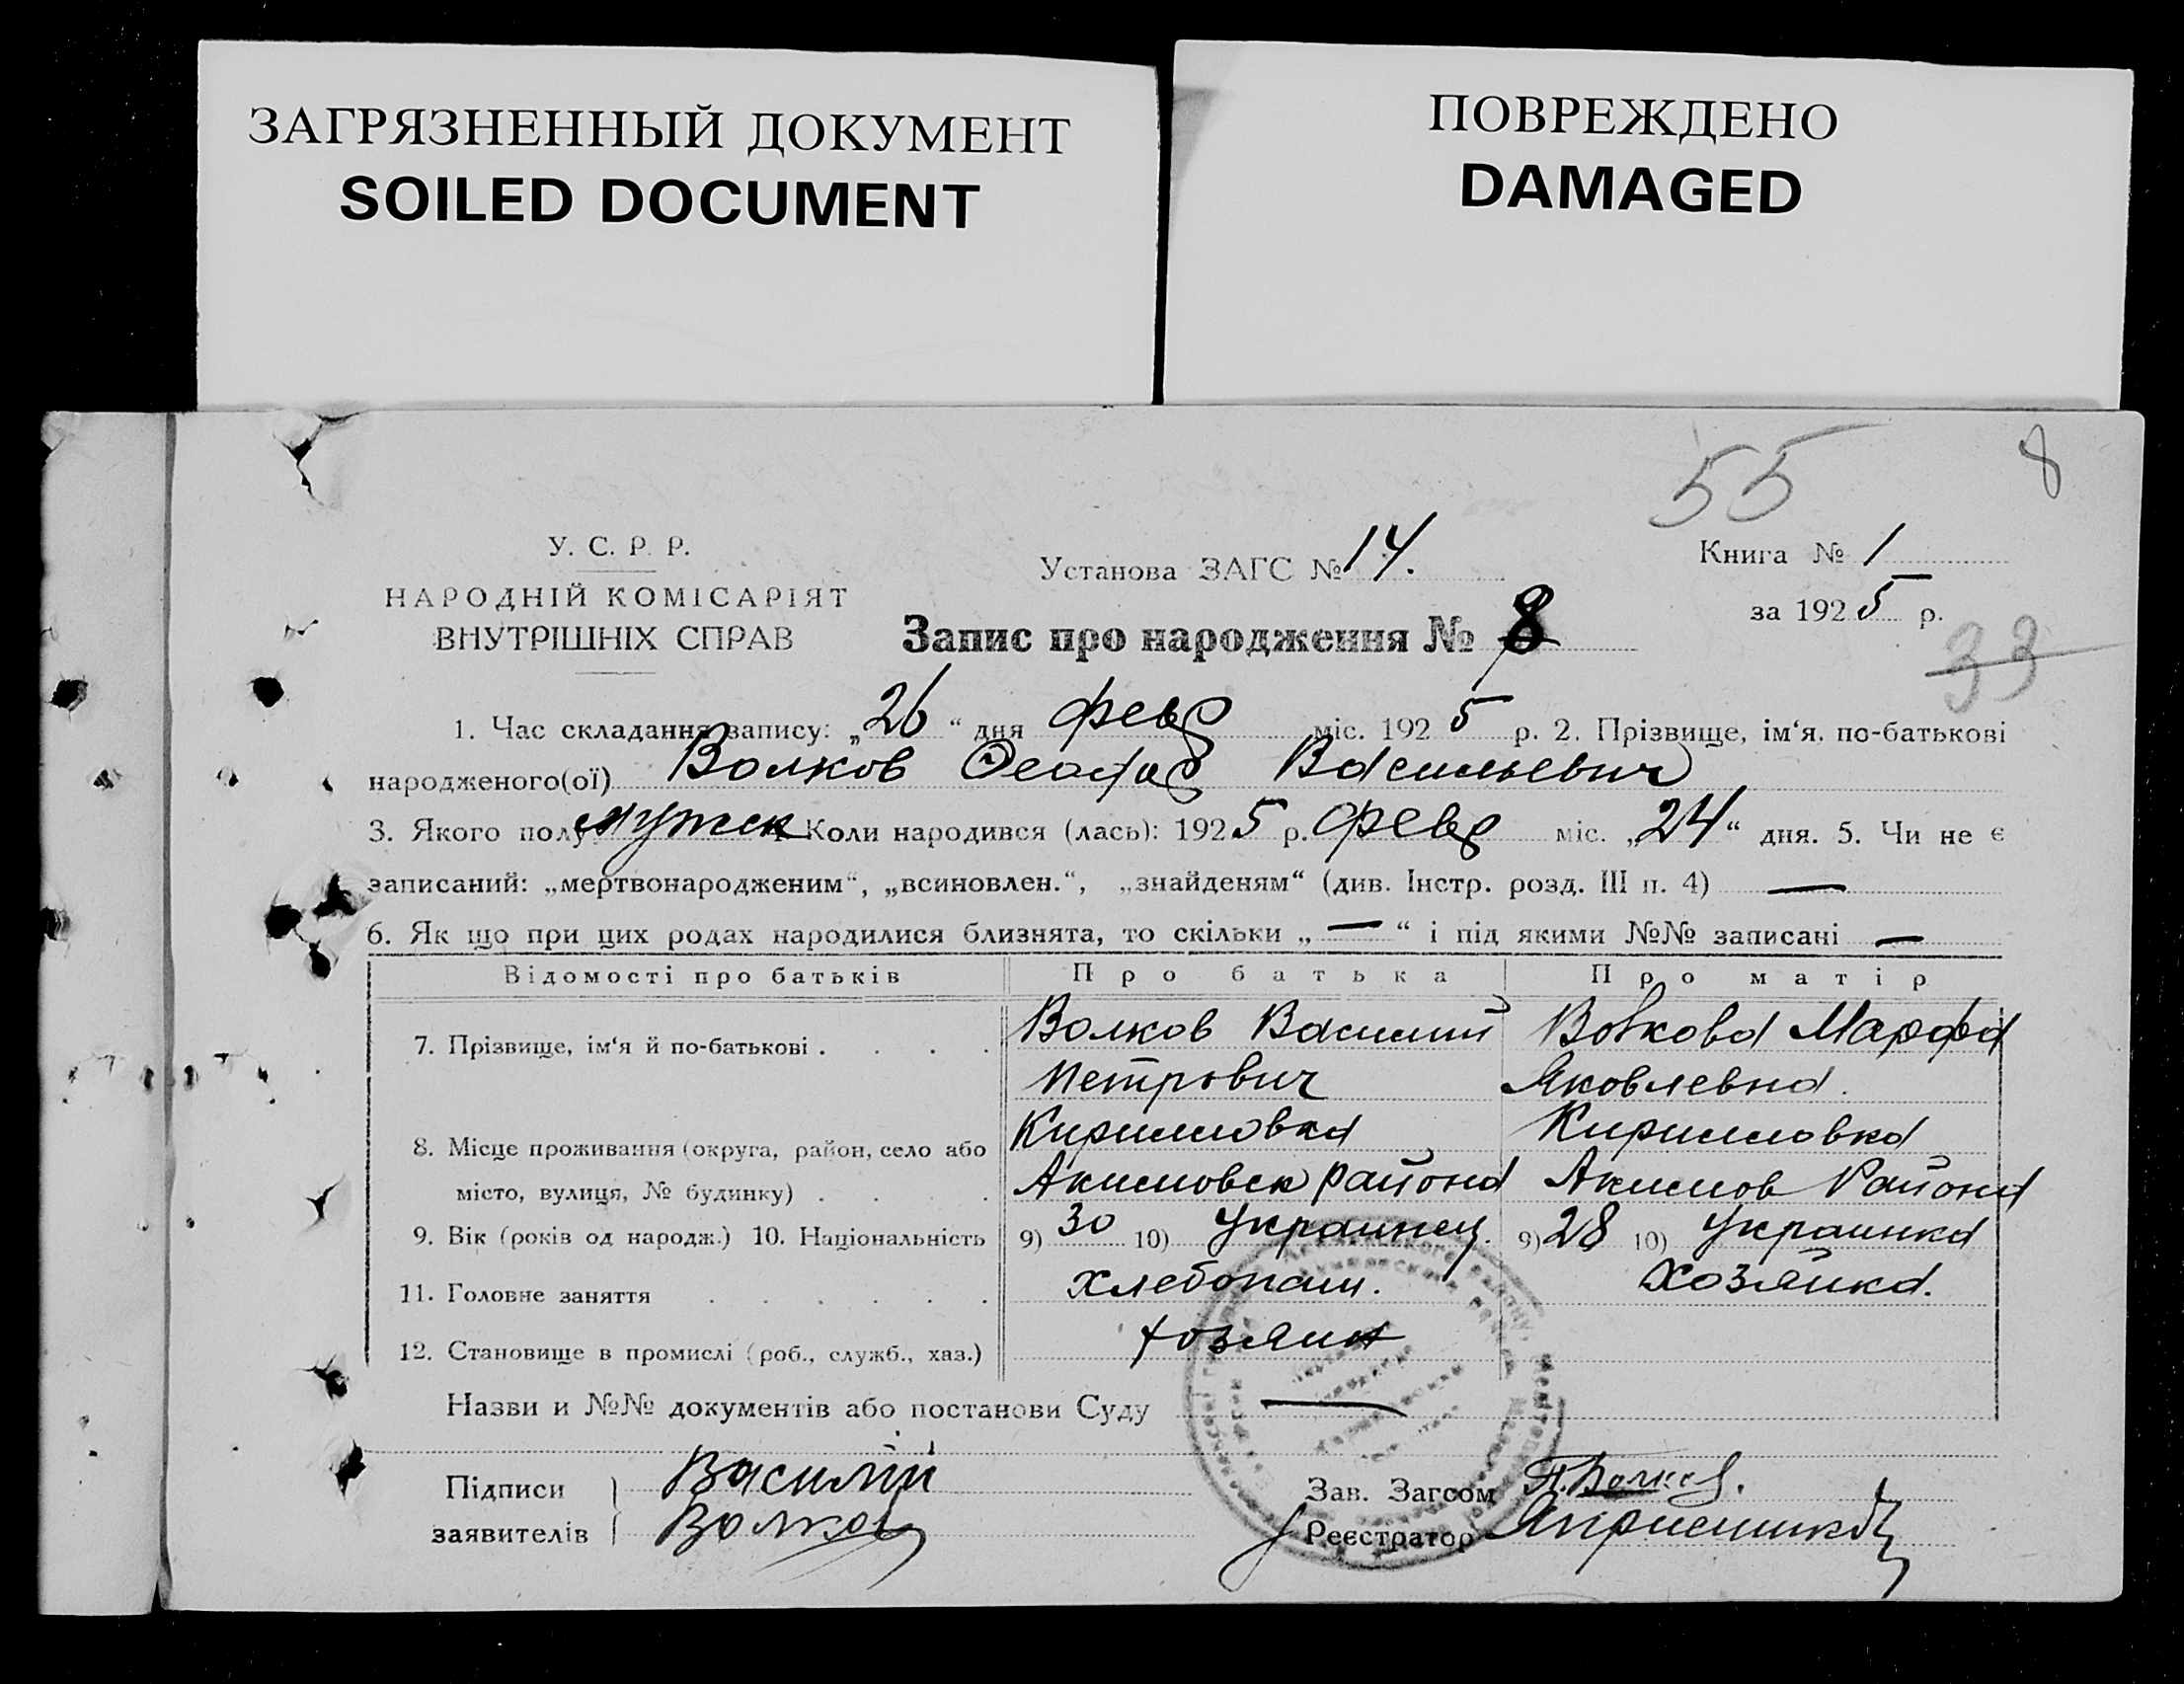 ЗАГРЯЗНЕННЫЙ ДОКУМЕНТ
SOILED DOCUMENT
ПОВРЕЖДЕНО
DAMAGED
55
8
У. С. Р. Р.
НАРОДНІЙ КОМІСАРІЯТ
ВНУТРІШНІХ СПРАВ
Установа ЗАГС № 14.
Запис про народження № 8
Книга № 1
за 1925 р.
33
1. Час складання запису: „26“ дня февр міс. 1925 р. 2. Прізвище, ім‘я, по-батькові
народженого(ої) Волков Васильевич
3. Якого полу мужск Коли народився (лась): 1925 р. февр міс. „24“ дня. 5. Чи не є
записаний: „мертвонародженим“, „всиновлен.“, „знайденям“ (див. Інстр. розд. III п. 4) —
6. Як що при цих родах народилися близнята, то скільки „—“ і під якими №№ записані —
Відомості про батьків Про батька Про матір
7. Прізвище, ім‘я й по-батькові . . . . Волков Василий Волкова Марфа
Петрович Яковлевна.
8. Місце проживання (округа, район, село або Кирилловка Кирилловка
місто, вулиця, № будинку) . . . . Акимовск района Акимов Района
9. Вік (років од народж.) 10. Національність 9) 30 10) Украинец. 9) 28 10) Украинка
11. Головне заняття . . . . . . хлебопаш. Хозяйка.
12. Становище в промислі (роб., служб., хаз.) хозяин
Назви и №№ документів або постанови Суду —
Підписи Василий Зав. Загсом П. Волков.
заявителів Волков Реєстратор